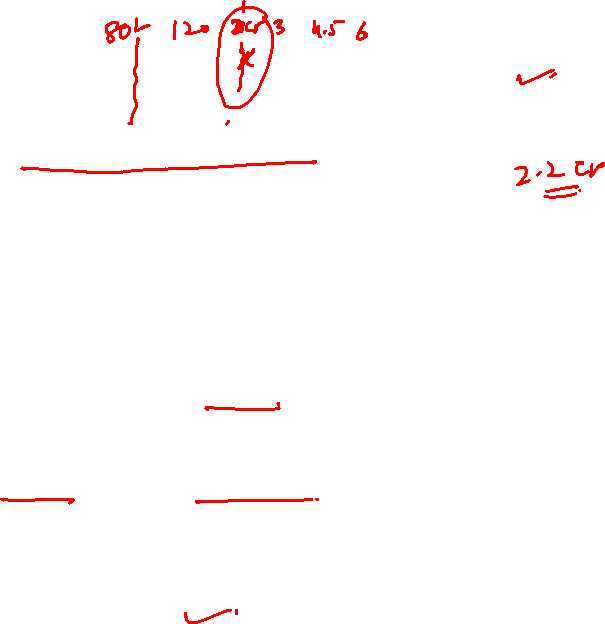 80L 120 2Cr 3 4.5 6
2.2 Cr